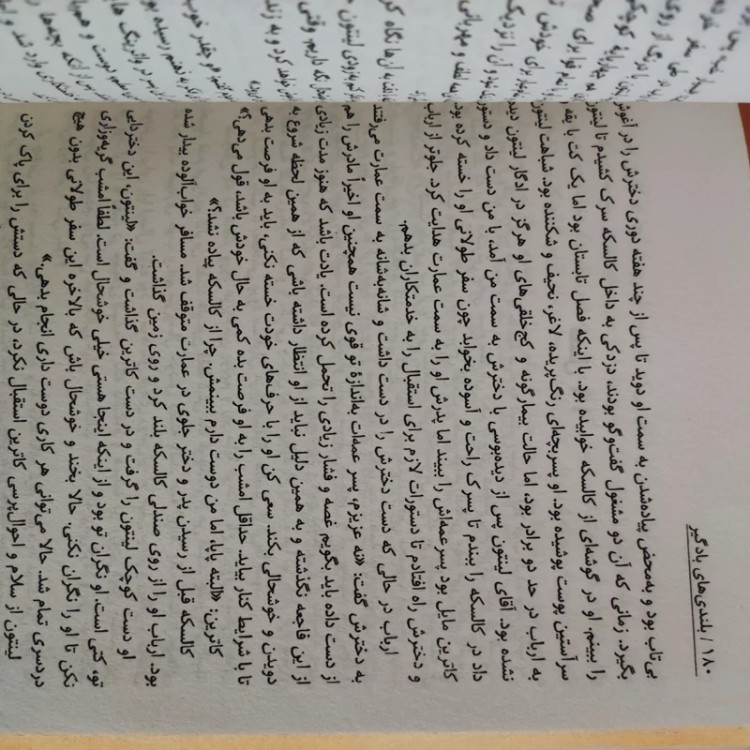 ۱۸۰ / بلندی‌های بادگیر
بی‌تاب بود و به‌محض پیاده‌شدن به سمت او دوید تا پس از چند هفته دوری دخترش را در آغوش
بگیرد. زمانی که آن دو مشغول گفت‌وگو بودند، دزدکی به داخل کالسکه سرک کشیدم تا لینتون
را ببینم. او در گوشه‌ای از کالسکه خوابیده بود. با اینکه فصل تابستان بود اما یک کت با یقه
سرآستین پوست پوشیده بود. او پسربچه‌ای رنگ‌پریده، لاغر، نحیف و شکننده بود. شباهت لینتون
به ارباب در حد دو برادر بود، اما حالت بیمارگونه و کج‌خلقی‌های او هرگز در ادگار لینتون دیده
نشده بود. آقای لینتون پس از دیده‌بوسی با دخترش به سمت من آمد، با من دست داد و دستور
داد در کالسکه را ببندم تا پسرک راحت و آسوده بخوابد چون سفر طولانی او را خسته کرده بود.
کاترین مایل بود پسرعمه‌اش را ببیند اما پدرش او را به سمت عمارت هدایت کرد. جلوتر از ارباب
و دخترش راه افتادم تا دستورات لازم برای استقبال را به خدمتکاران بدهم.
ارباب در حالی که دست دخترش را در دست داشت و شانه‌به‌شانه به سمت عمارت می‌رفتند
به دخترش گفت: «نه عزیزم، پسر عمه‌ات به‌اندازهٔ تو قوی نیست همچنین او اخیراً مادرش را هم
از دست داده باید بگویم غصه و فشار زیادی را تحمل کرده است. یادت باشد که هنوز مدت زیادی
از این فاجعه نگذشته و به همین دلیل نباید از او انتظار داشته باشی که از همین لحظه شروع به
دویدن و خوشحالی بکند. سعی کن او را با حرف‌های خودت خسته نکنی، باید به او فرصت بدهی
تا با شرایط کنار بیاید. حداقل امشب را به او فرصت بده کمی به حال خودش باشد، قول می‌دهی؟»
کاترین: «البته پاپا، اما من دوست دارم ببینمش. چرا از کالسکه پیاده نشد؟»
کالسکه قبل از رسیدن پدر و دختر جلوی در عمارت متوقف شد. مسافر خواب‌آلوده بیدار شده
بود. ارباب او را از روی صندلی کالسکه بلند کرد و روی زمین گذاشت.
او دست کوچک لینتون را گرفت و در دست کاترین گذاشت و گفت: «لینتون، این دختردایی
تو، کتی است. او نگران تو بود و از اینکه اینجا هستی خیلی خوشحال است. لطفاً امشب گریه‌وزاری
نکن تا او را نگران نکنی. حالا بخند و خوشحال باش که بالاخره این سفر طولانی بدون هیچ
دردسری تمام شد. حالا می‌توانی هر کاری دوست داری انجام بدهی.»
لینتون از سلام و احوال‌پرسی کاترین استقبال نکرد، در حالی که دستش را برای پاک کردن